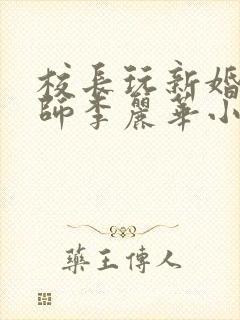 校長玩新婚
師李麗華小
藥王傳人